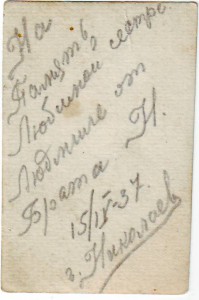 На
Память
Любимой сестре
Людмиле от
Брата Н.
15/IV-37.
г. Николаев